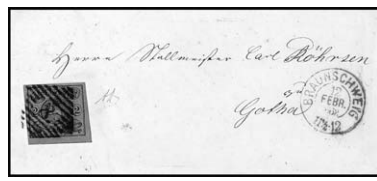 Herrn Stallmeister Carl Röhrsen
zu
Gotha
BRAUNSCHWEIG
12
FEBR.
11½-12